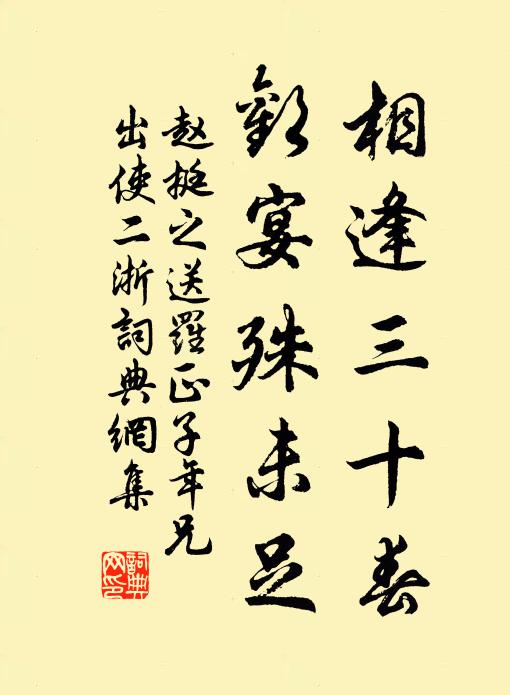 相逢三十春
歡宴殊未足
赵挺之送羅正子年兄
出使二浙詞典網集
詞典网印